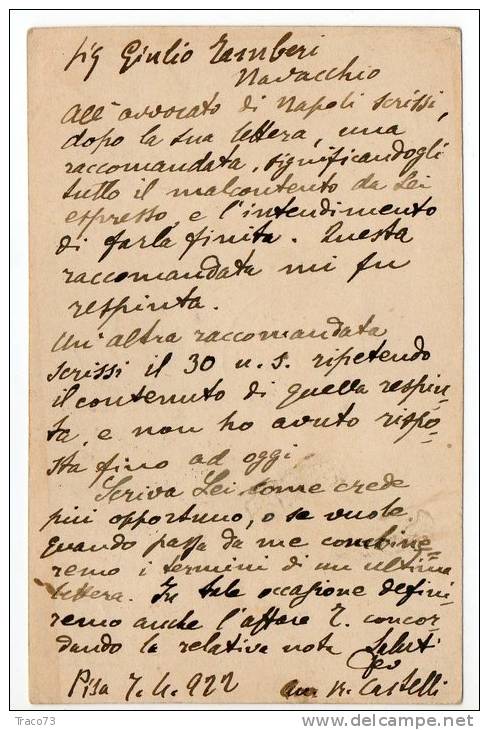 Sig Giulio Zamberi
Navacchio
All'avvocato di Napoli scrissi,
dopo la sua lettera, una
raccomandata, significandogli
tutto il malcontento da Lei
espresso, e l'intendimento
di farla finita. Questa
raccomandata mi fu
respinta.
Un'altra raccomandata
scrissi il 30 u.s. ripetendo
il contenuto di quella respin-
ta, e non ho avuto rispo-
sta fino ad oggi
Scriva Lei come crede
più opportuno, o se vuole
quando passa da me combine-
remo i termini di un'ultima
lettera. In tale occasione defini-
remo anche l'affare Z. concor-
dando la relativa nota Saluti
Pisa 7.4.922 Castelli
Traco73
delcampe.net